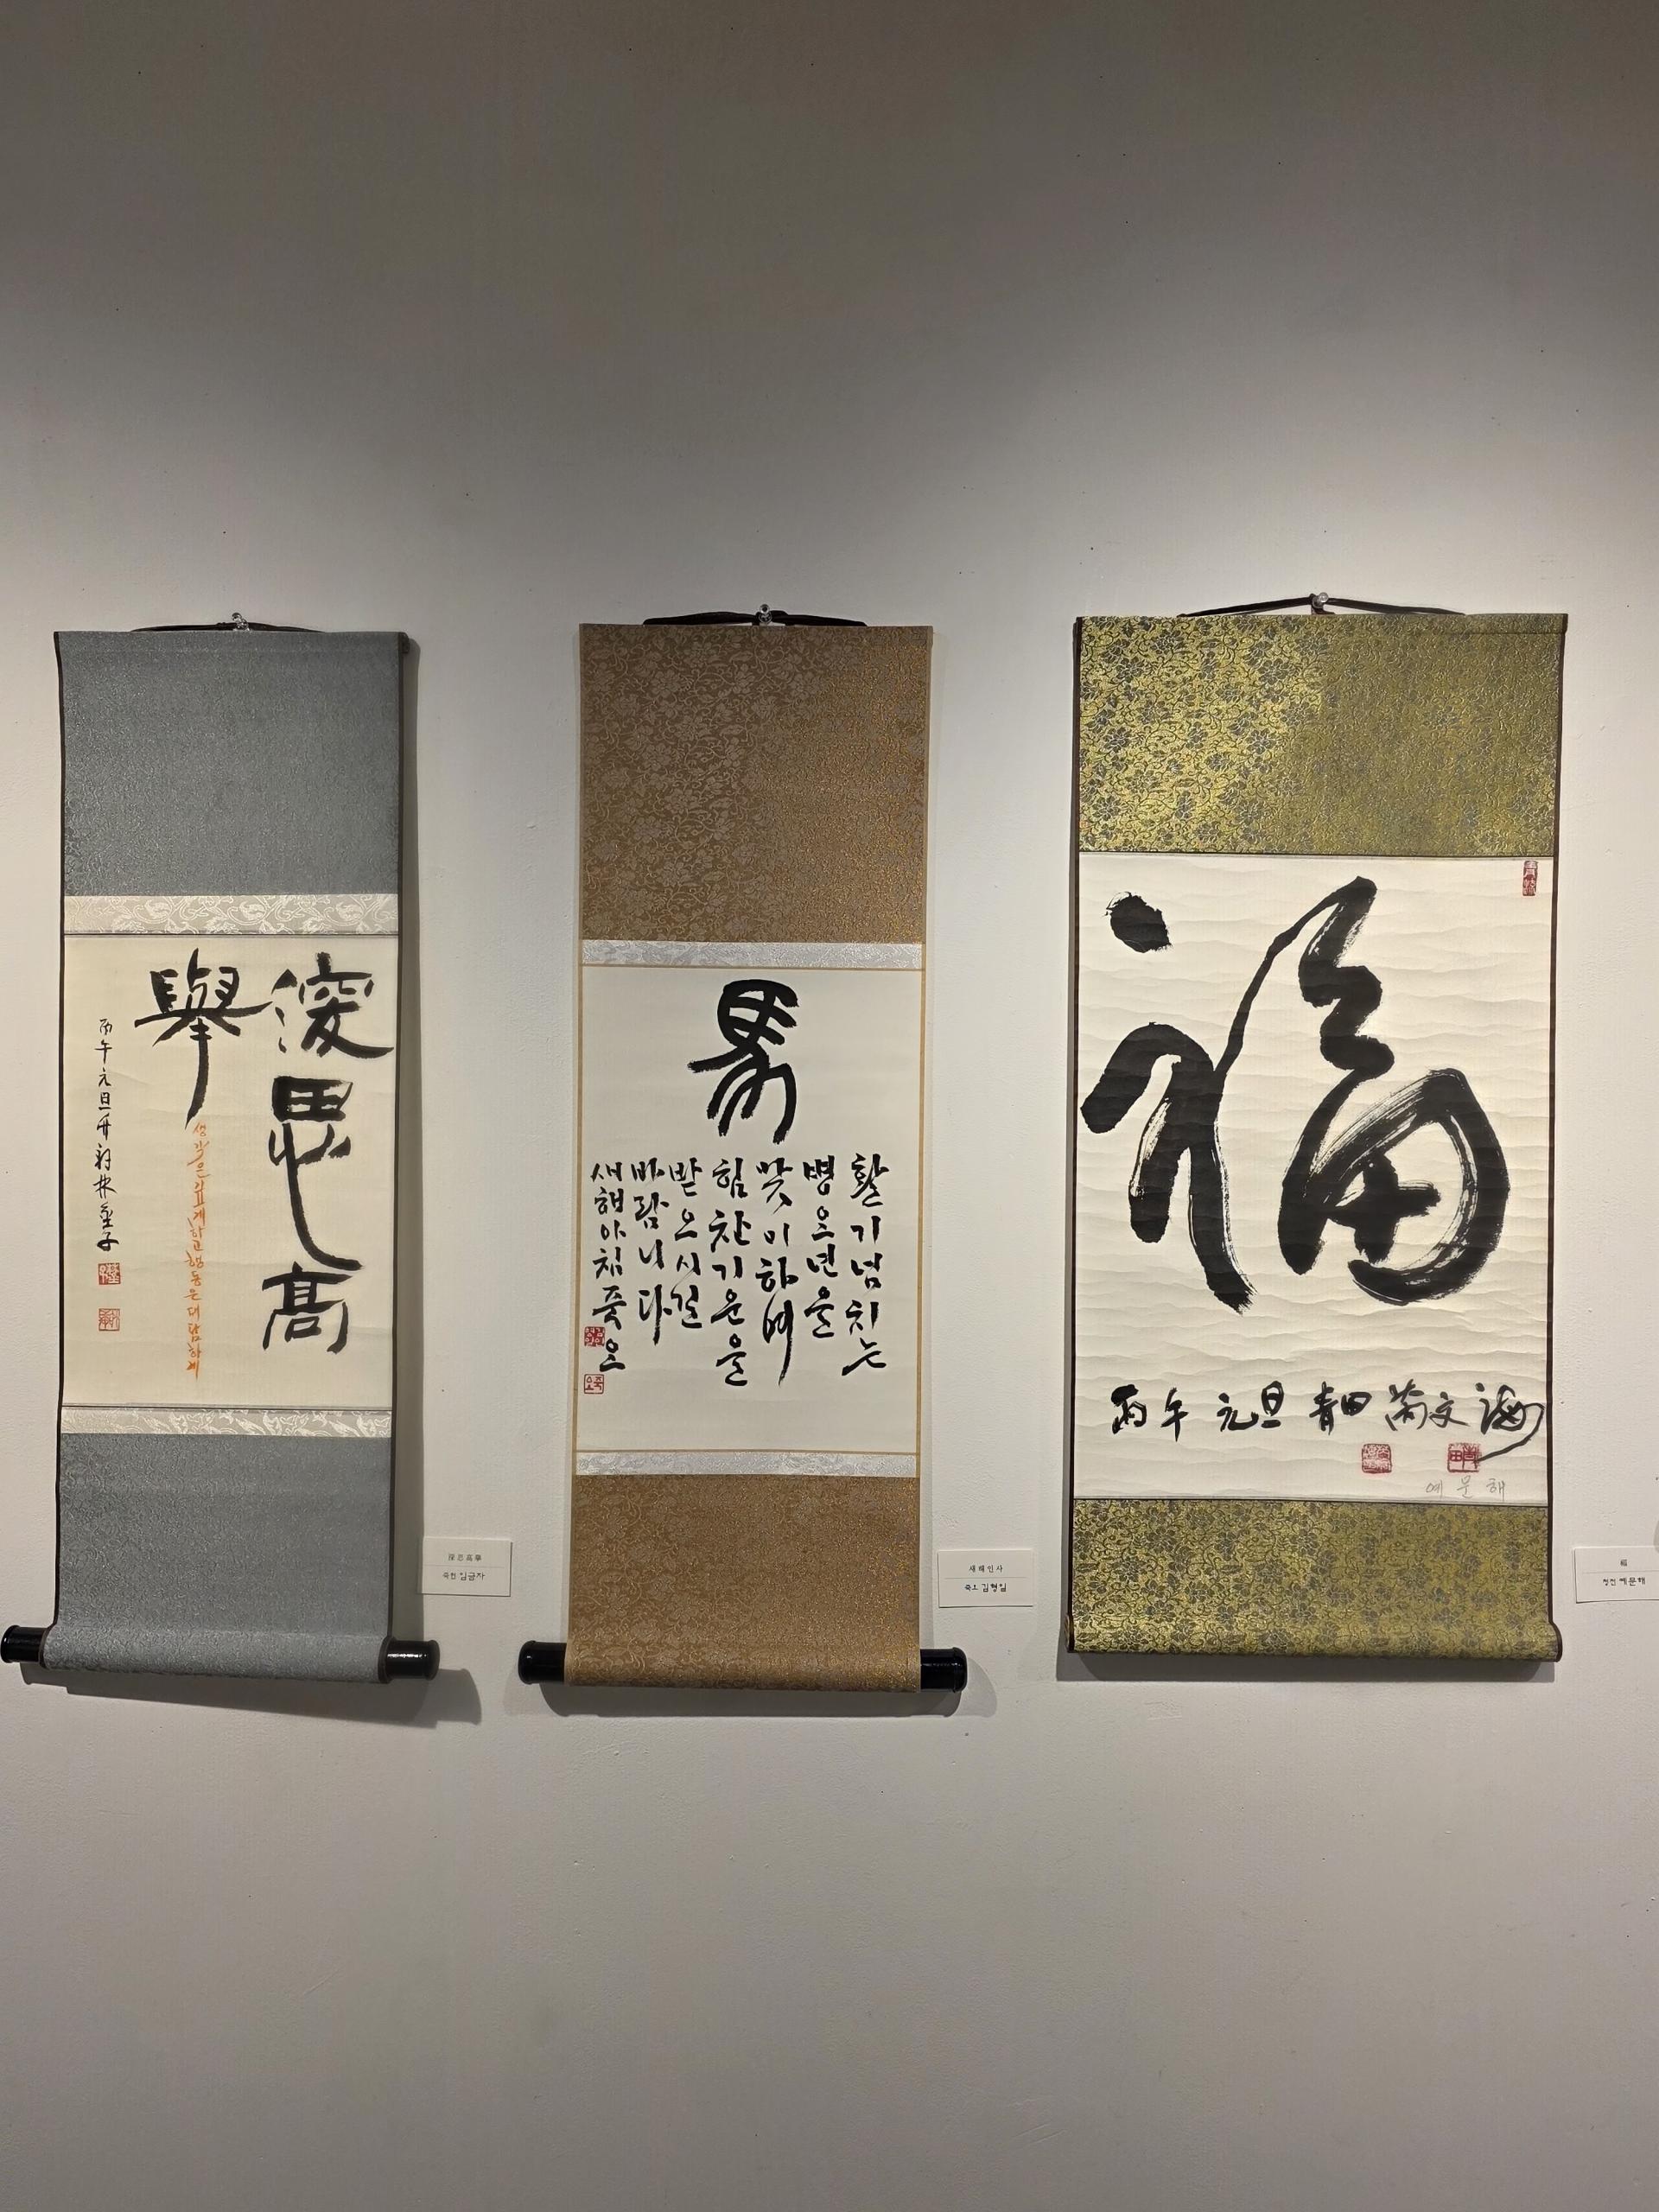 深思高
擧
생각은 깊게하고 행동은 대담하게
丙午元旦
深思高擧
임금자
馬
활기넘치는
병오년을
맞이하여
힘찬기운을
받으시길
바랍니다
새해아침 죽오
새해인사
죽오 김형일
福
丙午 元旦 青田 芮文海
예문해
福
청전 예문해